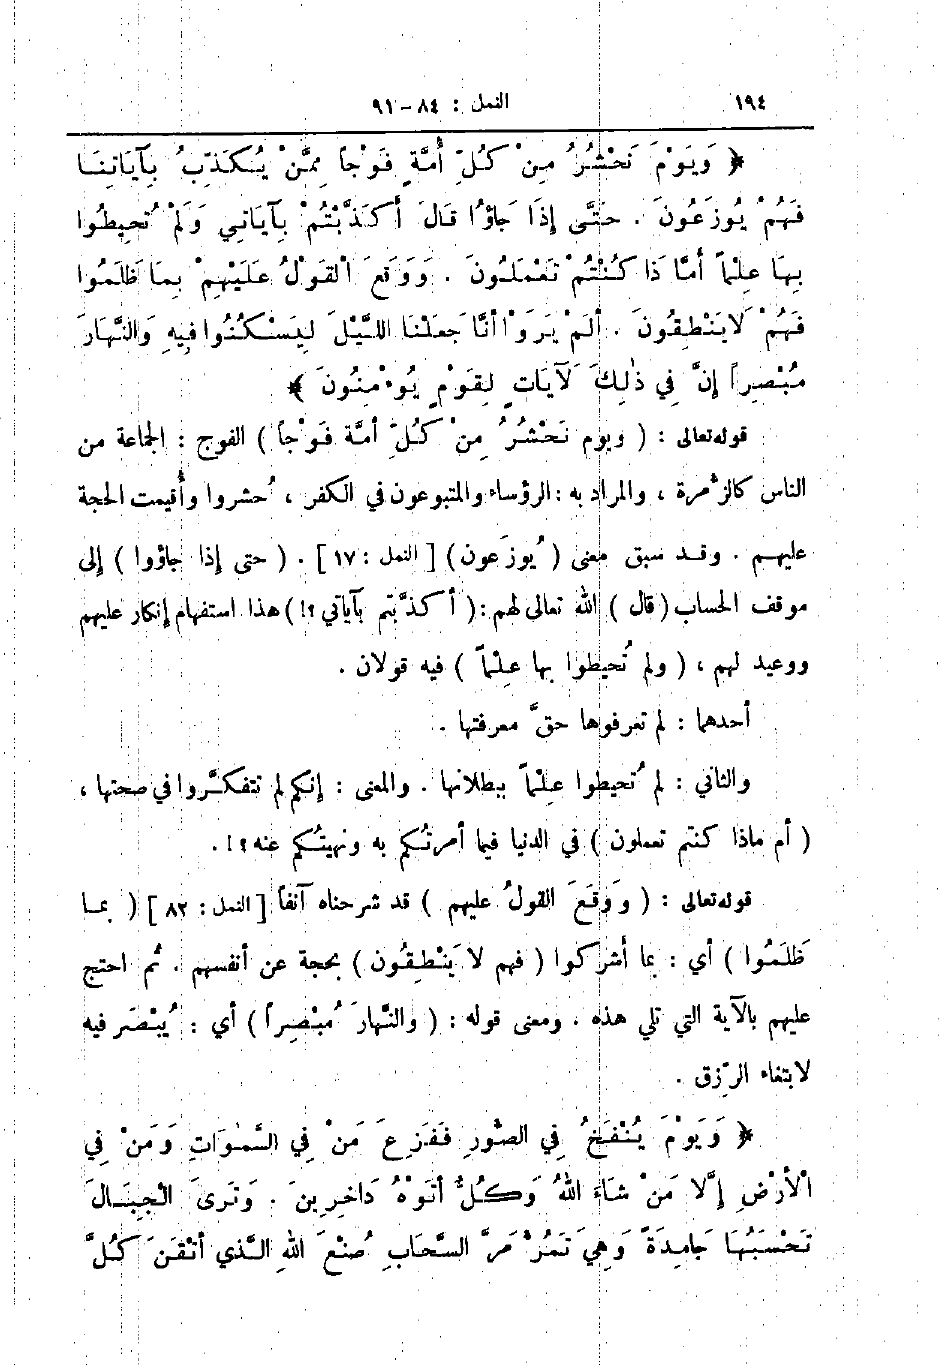 ١٩٤ النمل : ٨٤ – ٩١
﴿ وَيَوْمَ نَحْشُرُ مِنْ كُلِّ أُمَّةٍ فَوْجاً مِمَّنْ يُكَذِّبُ بِآيَاتِنَا
فَهُمْ يُوزَعُونَ . حَتَّى إِذَا جَاؤُا قَالَ أَكَذَّبْتُمْ بِآيَاتِي وَلَمْ تُحِيطُوا
بِهَا عِلْماً أَمَّا ذَا كُنْتُمْ تَعْمَلُونَ . وَوَقَعَ الْقَوْلُ عَلَيْهِمْ بِمَا ظَلَمُوا
فَهُمْ لَايَنْطِقُونَ . أَلَمْ يَرَوْا أَنَّا جَعَلْنَا اللَّيْلَ لِيَسْكُنُوا فِيهِ وَالنَّهَارَ
مُبْصِراً إِنَّ فِي ذٰلِكَ لَآيَاتٍ لِقَوْمٍ يُؤْمِنُونَ ﴾
قوله تعالى : ( ويوم نَحْشُرُ مِنْ كُلِّ أمَّة فَوْجاً ) الفوج : الجماعة من
الناس كالزُّمرة ، والمراد به : الرؤساء والمتبوعون في الكفر ، حُشروا وأُقيمت الحجة
عليهم . وقد سبق معنى ( يُوزَعون ) [ النمل : ١٧ ] . ( حتى إذا جاؤوا ) إلى
موقف الحساب ( قال ) الله تعالى لهم : ( أكذَّبتم بآياتي ؟! ) هذا استفهام إنكار عليهم
ووعيد لهم ، ( ولم تُحيطوا بها عِلْماً ) فيه قولان .
أحدهما : لم تعرفوها حقَّ معرفتها .
والثاني : لم تُحيطوا عِلْماً ببطلانها . والمعنى : إنكم لم تتفكَّروا في صحتها ،
( أم ماذا كنتم تعملون ) في الدنيا فيما أمرتُكم به ونهيتُكم عنه ؟! .
قوله تعالى : ( وَوَقَعَ القولُ عليهم ) قد شرحناه آنفاً [ النمل : ٨٢ ] ( بما
ظَلَمُوا ) أي : بما أشركوا ( فهم لا يَنْطِقُون ) بحجة عن أنفسهم . ثم احتج
عليهم بالآية التي تلي هذه . ومعنى قوله : ( والنَّهارَ مُبْصِراً ) أي : يُبْصَر فيه
لابتغاء الرِّزق .
﴿ وَيَوْمَ يُنْفَخُ فِي الصُّورِ فَفَزِعَ مَنْ فِي السَّمٰوَاتِ وَمَنْ فِي
الْأَرْضِ إِلَّا مَنْ شَاءَ اللهُ وَكُلٌّ أَتَوْهُ دَاخِرِينَ . وَتَرَى الْجِبَالَ
تَحْسَبُهَا جَامِدَةً وَهِيَ تَمُرُّ مَرَّ السَّحَابِ صُنْعَ اللهِ الَّذِي أَتْقَنَ كُلَّ